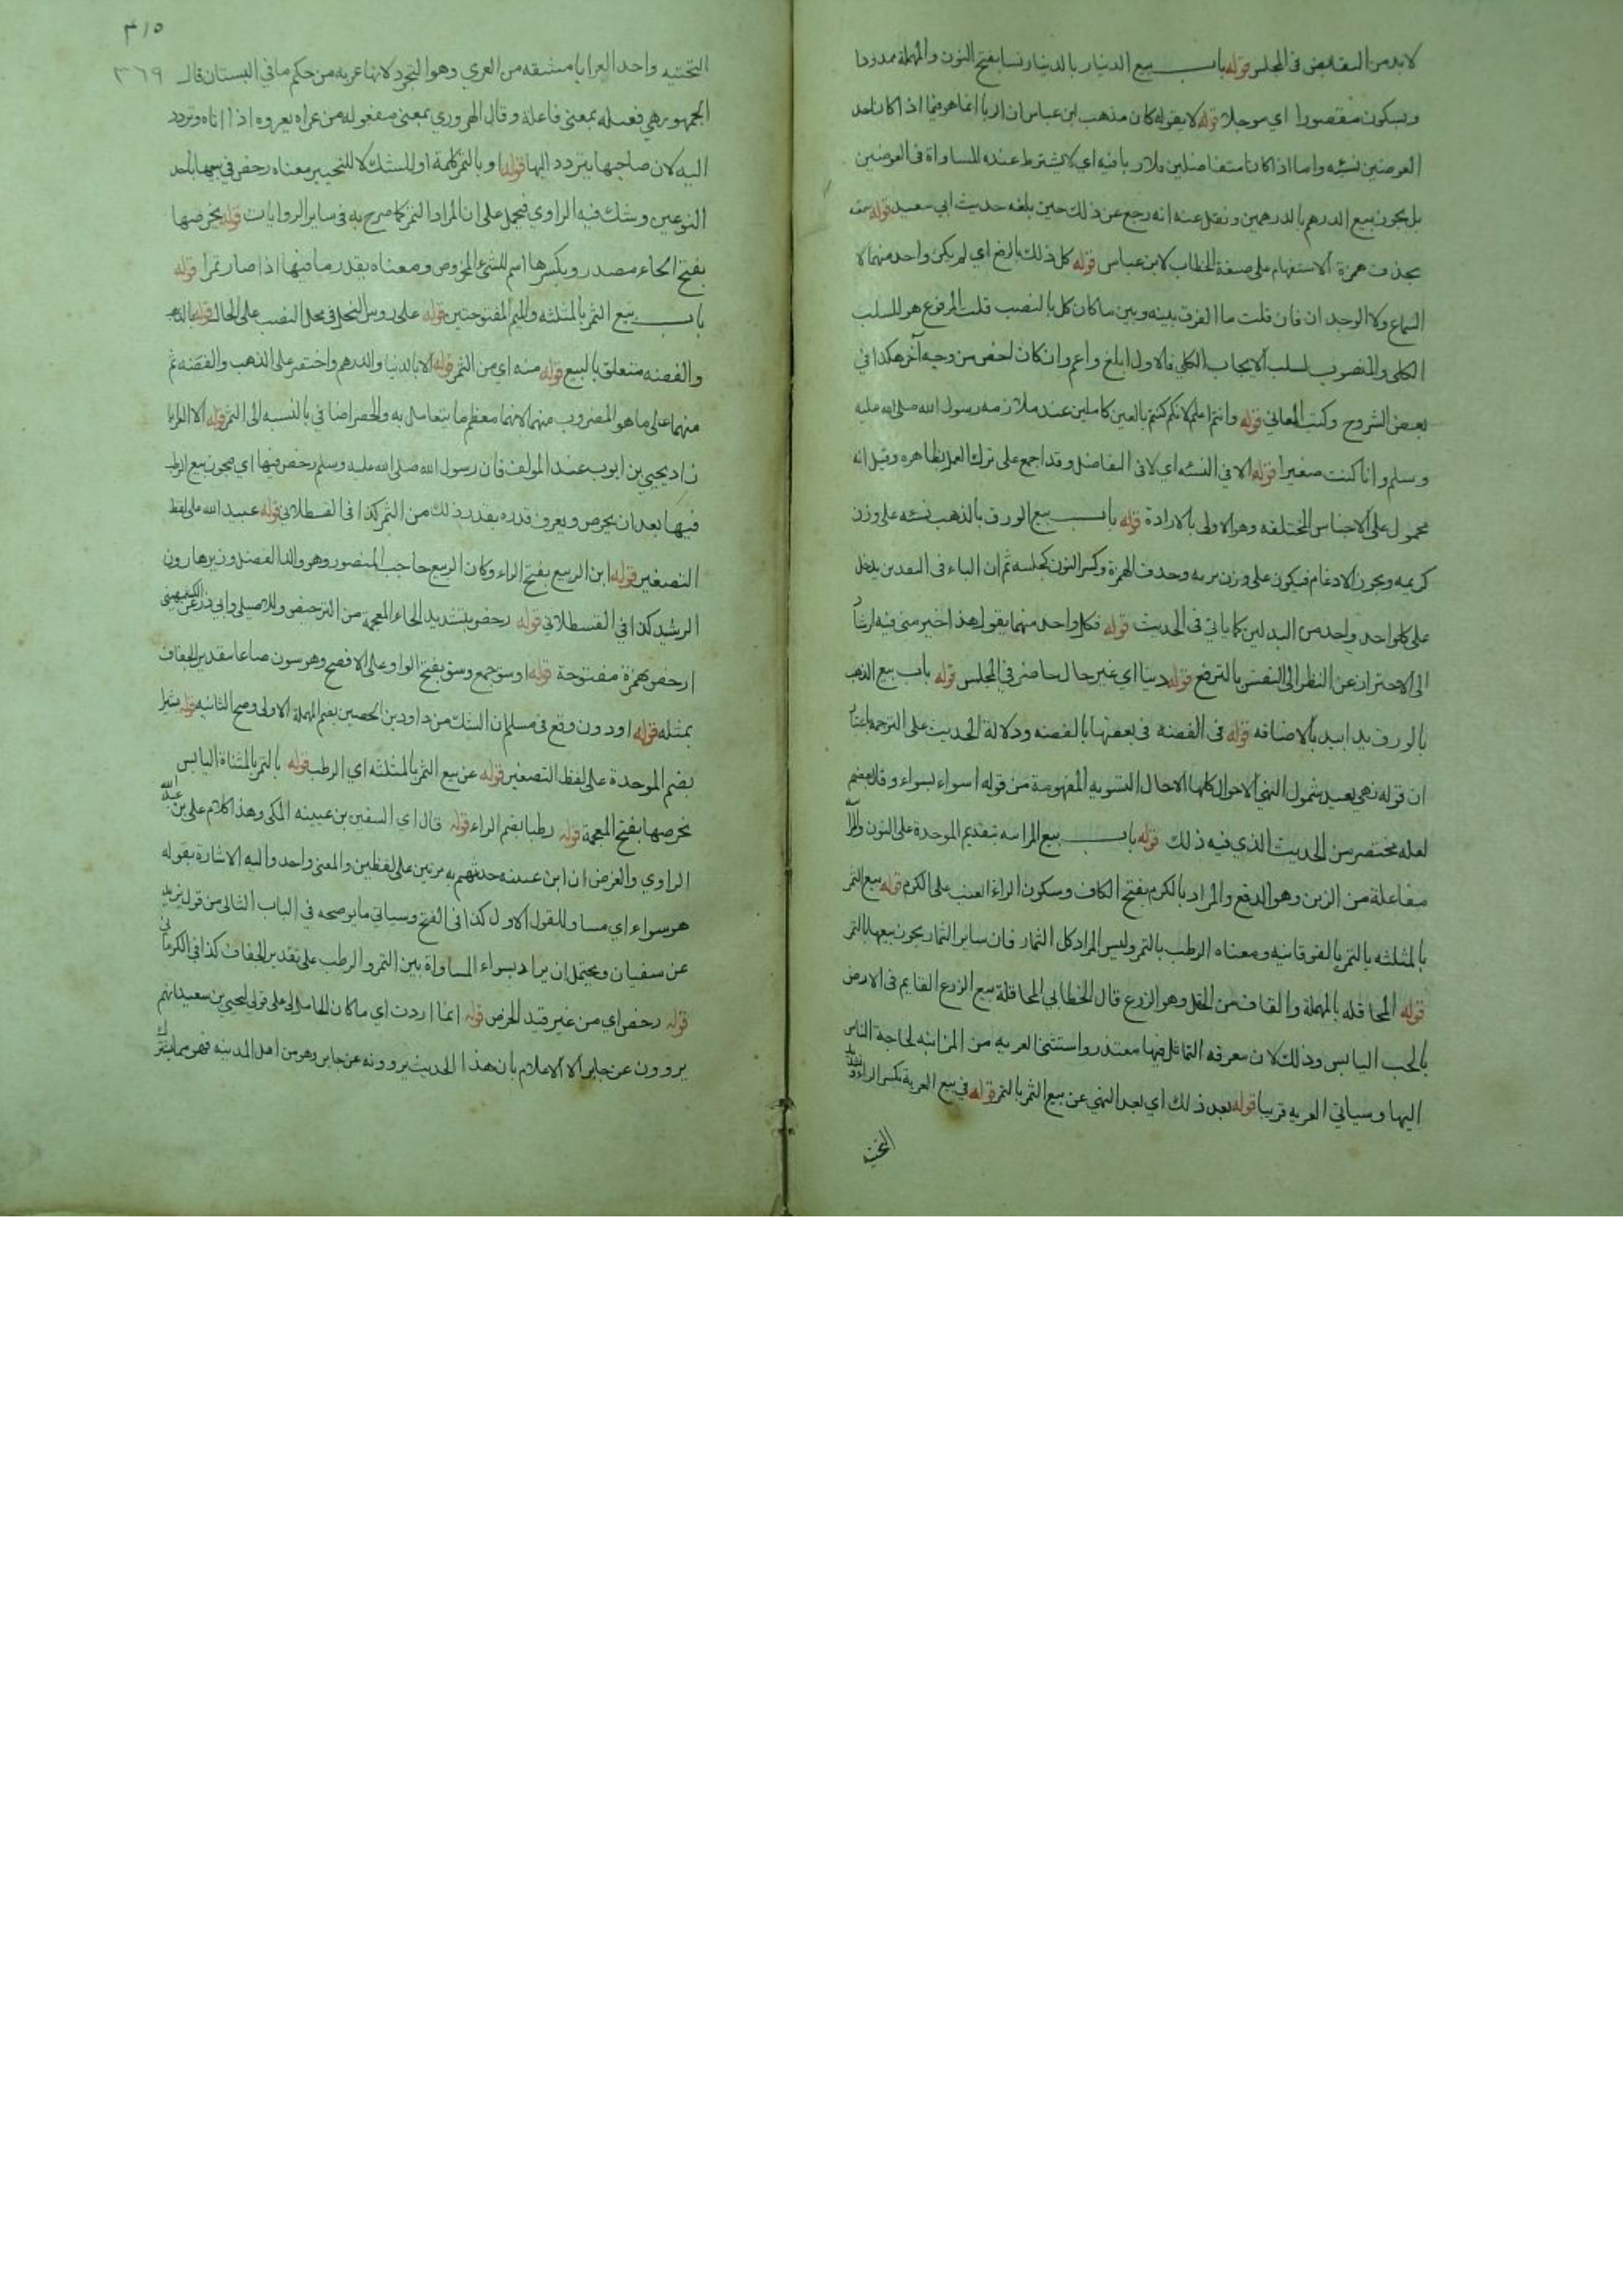 لابد من التقابض في المجلس قوله باب بيع الدينار بالدينار نسا بفتح النون والمهملة ممدودا
وبسكون مقصورا اي موجلا قوله لا يقوله كان مذهب ابن عباس ان الربا انما هو فيما اذا كان احد
العوضين نسئه واما اذا كانا متفاضلين فلا ربا فيه اي لا يشترط عنده المساواة في العوضين
بل يجوز بيع الدرهم بالدرهمين ونقل عنه انه رجع عن ذلك حين بلغه حديث ابي سعيد قوله سمعته
بحذف همزة الاستفهام على صيغة الخطاب لابن عباس قوله كل ذلك بالرفع اي لم يكن واحد منهما لا
السماع ولا الوجدان فان قلت ما الفرق بينه وبين ما كان كل بالنصب قلت المرفوع هو للسلب
الكلي والمنصوب لسلب الايجاب الكلي فالاول ابلغ واعم وان كان اخص من وجه آخر هكذا في
بعض الشروح وكتب المعاني قوله وانتم اعلم لانكم كنتم بالغين كاملين عند ملازمه رسول الله صلى الله عليه
وسلم وانا كنت صغيرا قوله الا في النسئه اي لا في التفاضل وقد اجمع على ترك العمل بظاهره وقيل انه
محمول على الاجناس المختلفه وهو الاولى بالارادة قوله باب بيع الورق بالذهب نسئه على وزن
كريمه ويجوز الادغام فيكون على وزن بريه وحذف الهمزة وكسر النون كجلسه ثم ان الباء في النقدين يدخل
على كل واحد واحد من البدلين كما ياتي في الحديث قوله فكل واحد منهما يقول هذا اخير مني فيه ارشادا
الى الاحتراز عن النظر الى النفس بالترفع قوله دينا اي غير حال حاضر في المجلس قوله باب بيع الذهب
بالورق يدا بيد بالاضافه قوله في الفضة في بعضها بالفضه ودلالة الحديث على الترجمه باعتبار
ان قوله نهي بعيد شمول النهي الاحوال كلها الا حال التسويه المفهومة من قوله اسواء بسواء وقال بعضهم
لعله مختصر من الحديث الذي فيه ذلك قوله باب بيع المزابنه بتقديم الموحدة على النون
مفاعلة من الزبن وهو الدفع والمراد بالكرم بفتح الكاف وسكون الراء العنب على الكرم قوله بيع الثمر
بالمثلثه بالتمر بالفوقانيه ومعناه الرطب بالتمر وليس المراد كل الثمار فان ساير الثمار يجوز بيعها بالتمر
قوله المحاقله بالمهملة والقاف من الحقل وهو الزرع قال الخطابي المحاقلة بيع الزرع القايم في الارض
بالحب اليابس وذلك لان معرفه التماثل فيها متعذر واستثنى العريه من المزابنه لحاجة الناس
اليها وسياتي العريه قريبا قوله بعد ذلك اي بعد النهي عن بيع الثمر بالتمر قوله في بيع العرية بكسر الراء وتشديد
التحتيه
٣١٥
٣٦٩
التحتيه واحد العرايا مشتقه من العري وهو التجرد لانها عريه من حكم ما في البستان قال
الجمهور هي فعيله بمعنى فاعلة وقال الهروري بمعنى مفعوله من عراه يعروه اذا اتاه وتردد
اليه لان صاحبها يتردد اليها قوله او بالتمر كلمة او للشك لا للتخيير معناه رخص في بيعها باحد
النوعين وشك فيه الراوي فيحمل على ان المراد التمر كما صرح به في ساير الروايات قوله بخرصها
بفتح الخاء مصدر وبكسرها اسم للشيء المخروص ومعناه بقدر ما فيها اذا صار تمرا قوله
باب بيع الثمر بالمثلثه والميم المفتوحتين قوله على روس النخل في محل النصب على الحال قوله بالذهب
والفضه متعلق بالبيع قوله منه اي من الثمر قوله الا بالدينار والدرهم واختصر على الذهب والفضه ثم
منهما على ما هو المضروب منهما لانهما معظم ما يتعامل به والحصر اضافي بالنسبه الى الثمر قوله الا العرايا
زاد يحيى بن ايوب عند المولف فان رسول الله صلى الله عليه وسلم رخص فيها اي فيجوز بيع الرطب
فيها بعد ان يخرص ويعرف قدره بقدر ذلك من الثمر كذا في القسطلاني قوله عبيد الله على لفظ
التصغير قوله ابن الربيع بفتح الراء وكان الربيع حاجب المنصور وهو والد الفضل وزير هارون
الرشيد كذا في القسطلاني قوله رخص بتشديد الخاء المعجمة من الترخيص وللاصيلي وابي ذر عن الكشميهني
ارخص بهمزة مفتوحة قوله اوسق جمع وسق بفتح الواو على الافصح وهو ستون صاعا بتقدير الجفاف
بمثله قوله او دون وقع في مسلم ان الشك من داود بن الحصين بضم المهملة الاولى وفتح الثانيه قوله بشيرا
بضم الموحدة على لفظ التصغير قوله عن بيع الثمر بالمثلثه اي الرطب قوله بالتمر بالمثناة اليابس
بخرصها بفتح المعجمة قوله رطبا بضم الراء قوله قال اي السفين بن عيينه المكي وهذا كلام علي بن عبد الله
الراوي والغرض ان ابن عيينه حدثهم به مرتين على لفظين والمعنى واحد واليه الاشارة بقوله
هو سواء اي مساو للقول الاول كذا في الفتح وسياتي ما يوضحه في الباب الثاني من قول يزيد
عن سفيان ويحتمل ان يراد بسواء المساواة بين التمر والرطب على تقدير الجفاف كذا في الكرماني
قوله رخص اي من غير قيد الخرص قوله انما اردت اي ما كان الحامل لي على قولي ليحيى بن سعيد انهم
يروون عن جابر الا الاعلام بان هذا الحديث يروونه عن جابر وهو من اهل المدينه فهو مما